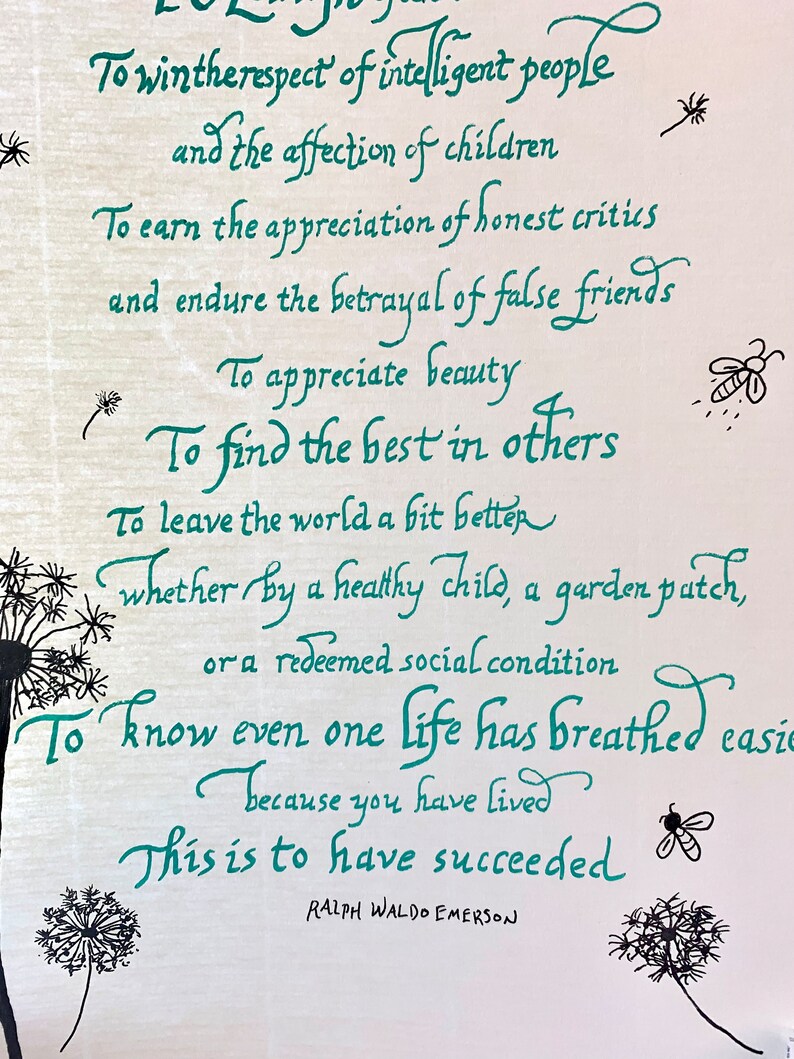 To win the respect of intelligent people
and the affection of children
To earn the appreciation of honest critics
and endure the betrayal of false friends
To appreciate beauty
To find the best in others
To leave the world a bit better
whether by a healthy child, a garden patch,
or a redeemed social condition
To know even one life has breathed easie
because you have lived
This is to have succeeded
RALPH WALDO EMERSON